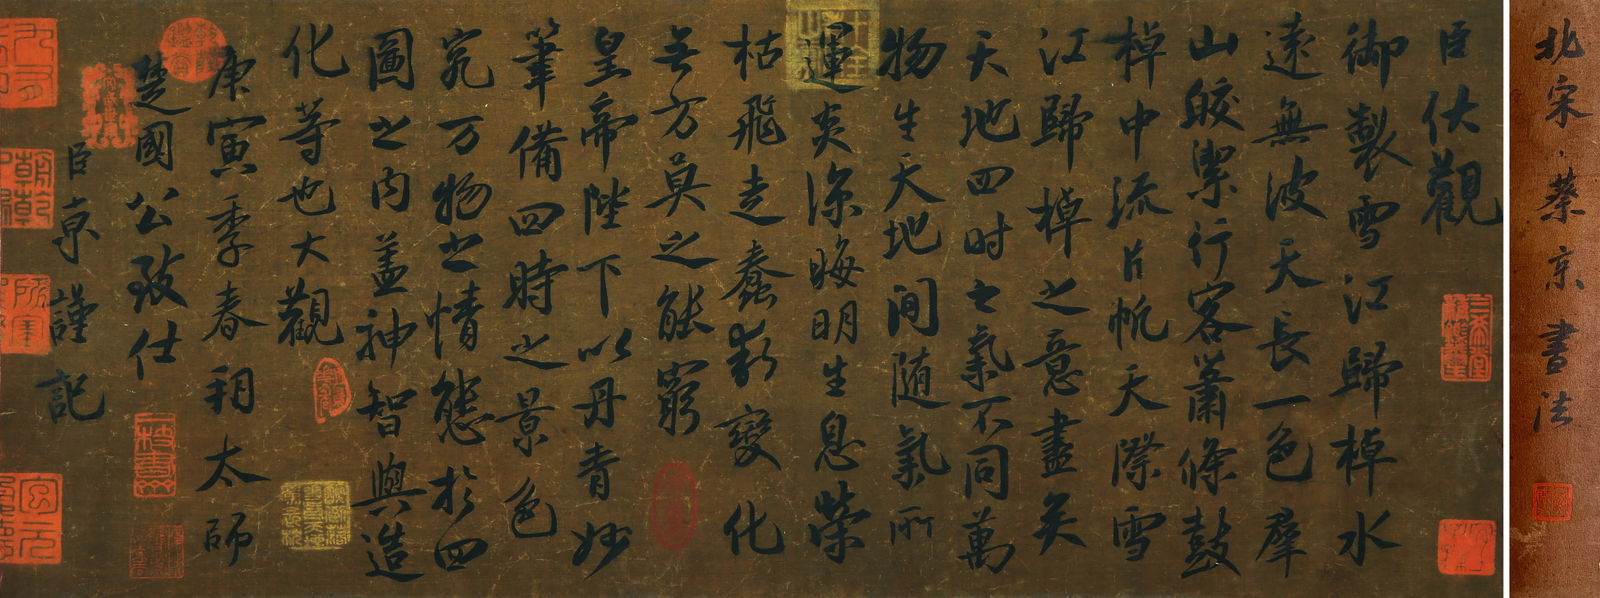 北宋·蔡京書法
臣伏觀
御製雪江歸棹水
遠無波天長一色羣
山皎潔行客蕭條鼓
棹中流片帆天際雪
江歸棹之意盡矣
天地四时之氣不同萬
物生天地間随氣所
運炎涼晦明生息榮
枯飛走蠢動變化
无方莫之能窮
皇帝陛下以丹青妙
筆備四時之景色
究万物之情態於四
圖之内盖神智與造
化等也大觀
庚寅季春朔太師
楚國公致仕
臣京謹記